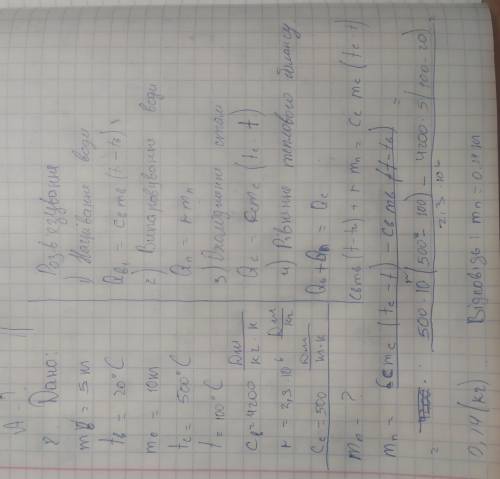 Дано:
mв = 5 кг
tв = 20° C
mc = 10кг
tc = 500°C
t = 100°C
Cв = 4200 Дж / кг·к
r = 2,3·10⁶ Дж / кг
Cc = 500
mп - ?
Розв'язування
1) Нагрівання води
Qв₁ = Cв mв (t - tв);
2) Випаровування води
Qп = r mп
3) Охолодження сталі
Qc = Cc mc (tc - t)
4) Рівняння теплового балансу
Qв + Qп = Qc
Cв mв (t - tв) + r mп = Cc mc (tc - t)
mп = Cc mc (tc - t) - Cв mв (t - tв) / r =
= 500·10 (500° - 100) - 4200·5 (100 - 20) / 2,3·10⁶ =
0,14 (кг)
Відповідь: mп = 0,14 кг